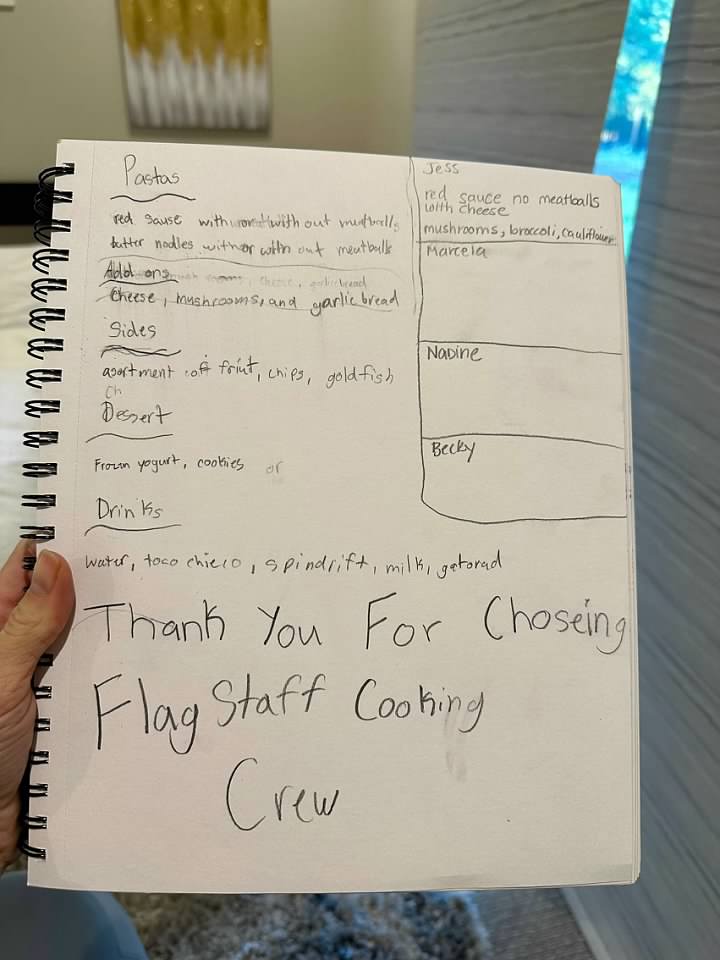 Pastas
red sause with or with out meatballs
butter nodles with or with out meatballs
Add ons
mushrooms, cheese, garlic bread
Cheese, mushrooms, and garlic bread
Sides
asortment off friut, chips, goldfish
Ch
Dessert
Frozin yogurt, cookies or
Drinks
water, toco chieco, spindrift, milk, gatorad
Thank You For Choseing
Flag Staff Cooking
Crew
Jess
red sauce no meatballs
with cheese
mushrooms, broccoli, cauliflower
Marcela
Nadine
Becky